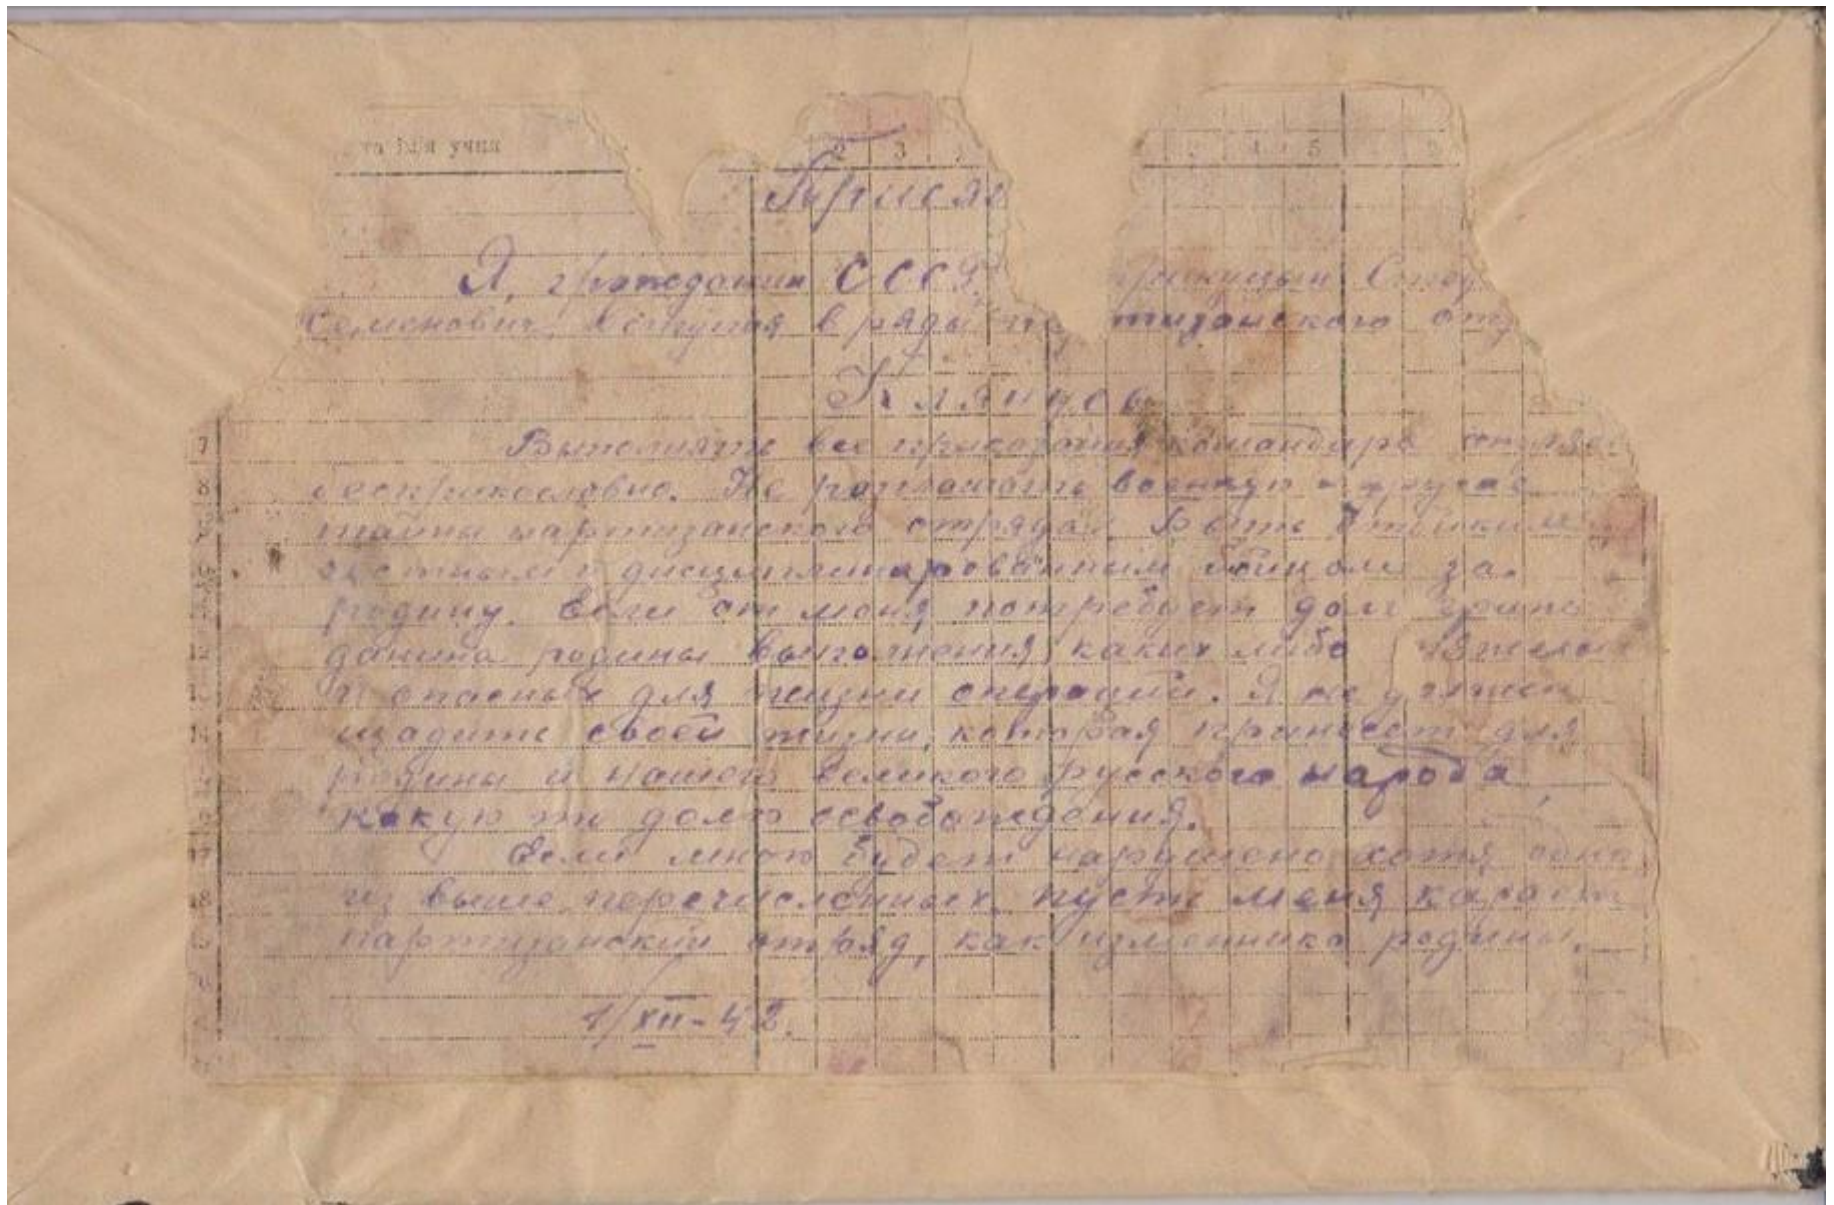 імя учня
2 3 4 5
Присяг
Я, гражданин СССР,
Семенович, вступая в ряды тизанского
Клянусь
7 Выполнять все приказания командира
8 бесприкословно. Не разглашать военную
тайны партизанского отряда. Быть
честным и дисциплинированным бойцом за
родину. Если от меня потребует долг
данина родины выполнения каких либо
и опасных для жизни операций. Я не
щадить своей жизни, которая принесет для
родины и нашего великого русского народа
какую то долю освобождения.
Если мною будет нарушено хотя одно
18 из выше перечисленных пусть меня карает
партизанский отряд, как изменника родины.
1/XII-42.